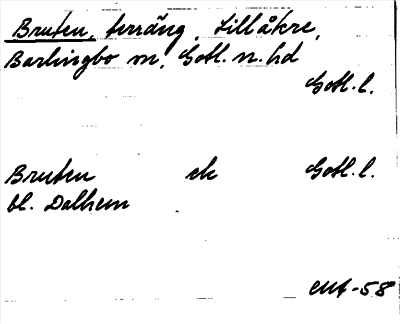 Bruten, terräng, Lillåkre,
Barlingbo sn, Gotl. n. hd
Gotl. l.
Bruten ek Gotl. l.
bl. Dalhem
-58